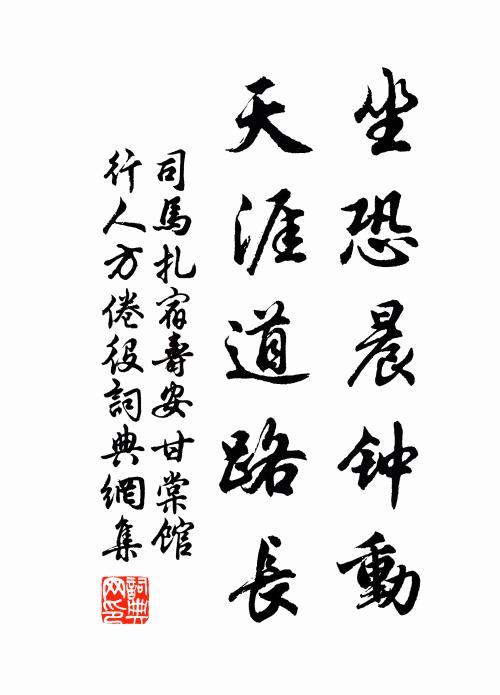 坐恐晨钟動
天涯道路長
司馬扎宿壽安甘棠館
行人方倦役詞典網集
詞典
网印